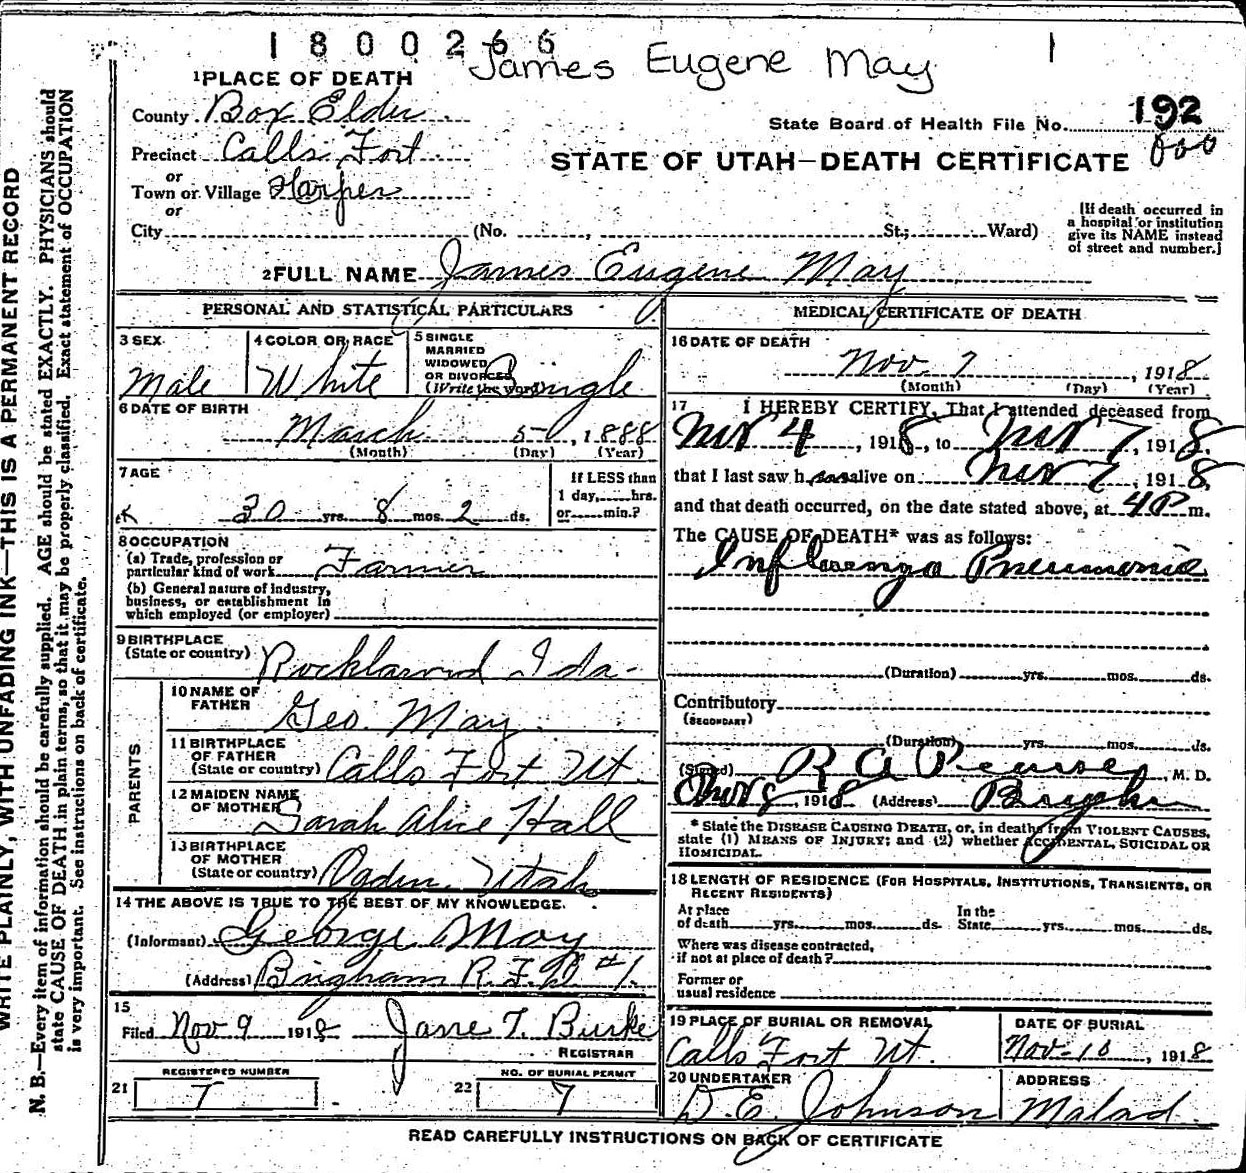 1800266
James Eugene May
1
1 PLACE OF DEATH
County Box Elder
Precinct Calls Fort
or
Town or Village Harper
or
City (No. , St.; Ward)
State Board of Health File No. 192
STATE OF UTAH—DEATH CERTIFICATE
[If death occurred in
a hospital or institution
give its NAME instead
of street and number.]
2 FULL NAME James Eugene May
PERSONAL AND STATISTICAL PARTICULARS
3 SEX
Male
4 COLOR OR RACE
White
5 SINGLE
MARRIED
WIDOWED
OR DIVORCED
(Write the word)
Single
6 DATE OF BIRTH
March 5, 1888
(Month) (Day) (Year)
7 AGE
30 yrs. 8 mos. 2 ds.
If LESS than
1 day, hrs.
or min.?
8 OCCUPATION
(a) Trade, profession or
particular kind of work Farmer
(b) General nature of industry,
business, or establishment in
which employed (or employer)
9 BIRTHPLACE
(State or country) Rockland Ida-
PARENTS
10 NAME OF
FATHER
Geo. May
11 BIRTHPLACE
OF FATHER
(State or country) Calls Fort Ut.
12 MAIDEN NAME
OF MOTHER
Sarah Alice Hall
13 BIRTHPLACE
OF MOTHER
(State or country) Ogden, Utah
14 THE ABOVE IS TRUE TO THE BEST OF MY KNOWLEDGE.
(Informant) George May
(Address) Bingham R.F.D #1.
15
Filed Nov 9 1918 T. Burke
REGISTRAR
REGISTERED NUMBER
21 7
NO. OF BURIAL PERMIT
22 7
MEDICAL CERTIFICATE OF DEATH
16 DATE OF DEATH
Nov. 7, 1918
(Month) (Day) (Year)
17 I HEREBY CERTIFY, That I attended deceased from
Nov 4, 1918, to Nov 7, 1918.
that I last saw h alive on Nov 7, 1918,
and that death occurred, on the date stated above, at 4 P m.
The CAUSE OF DEATH* was as follows:
Influenza Pneumonia
(Duration) yrs. mos. ds.
Contributory
(SECONDARY)
(Duration) yrs. mos. ds.
(Signed) R A Pearse, M. D.
Nov 8, 1918 (Address) Brigham
* State the DISEASE CAUSING DEATH, or, in deaths from VIOLENT CAUSES,
state (1) MEANS OF INJURY; and (2) whether ACCIDENTAL, SUICIDAL OR
HOMICIDAL.
18 LENGTH OF RESIDENCE (FOR HOSPITALS, INSTITUTIONS, TRANSIENTS, OR
RECENT RESIDENTS)
At place
of death yrs. mos. ds.
In the
State yrs. mos. ds.
Where was disease contracted,
if not at place of death?
Former or
usual residence
19 PLACE OF BURIAL OR REMOVAL
Calls Fort Ut.
DATE OF BURIAL
Nov-10, 1918
20 UNDERTAKER
D. E. Johnson
ADDRESS
Malad
READ CAREFULLY INSTRUCTIONS ON BACK OF CERTIFICATE
WRITE PLAINLY, WITH UNFADING INK—THIS IS A PERMANENT RECORD
N. B.—Every item of information should be carefully supplied. AGE should be stated EXACTLY. PHYSICIANS should
state CAUSE OF DEATH in plain terms, so that it may be properly classified. Exact statement of OCCUPATION
is very important. See instructions on back of certificate.